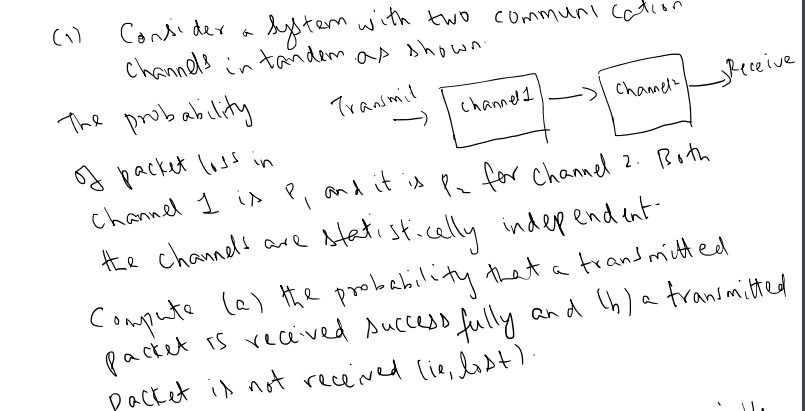 (1) Consider a system with two communication
channels in tandem as shown.
Transmit → channel 1 → channel 2 → Receive
The probability
of packet loss in
channel 1 is P1 and it is P2 for channel 2. Both
the channels are statistically independent.
Compute (a) the probability that a transmitted
packet is received successfully and (b) a transmitted
packet is not received (ie, lost).